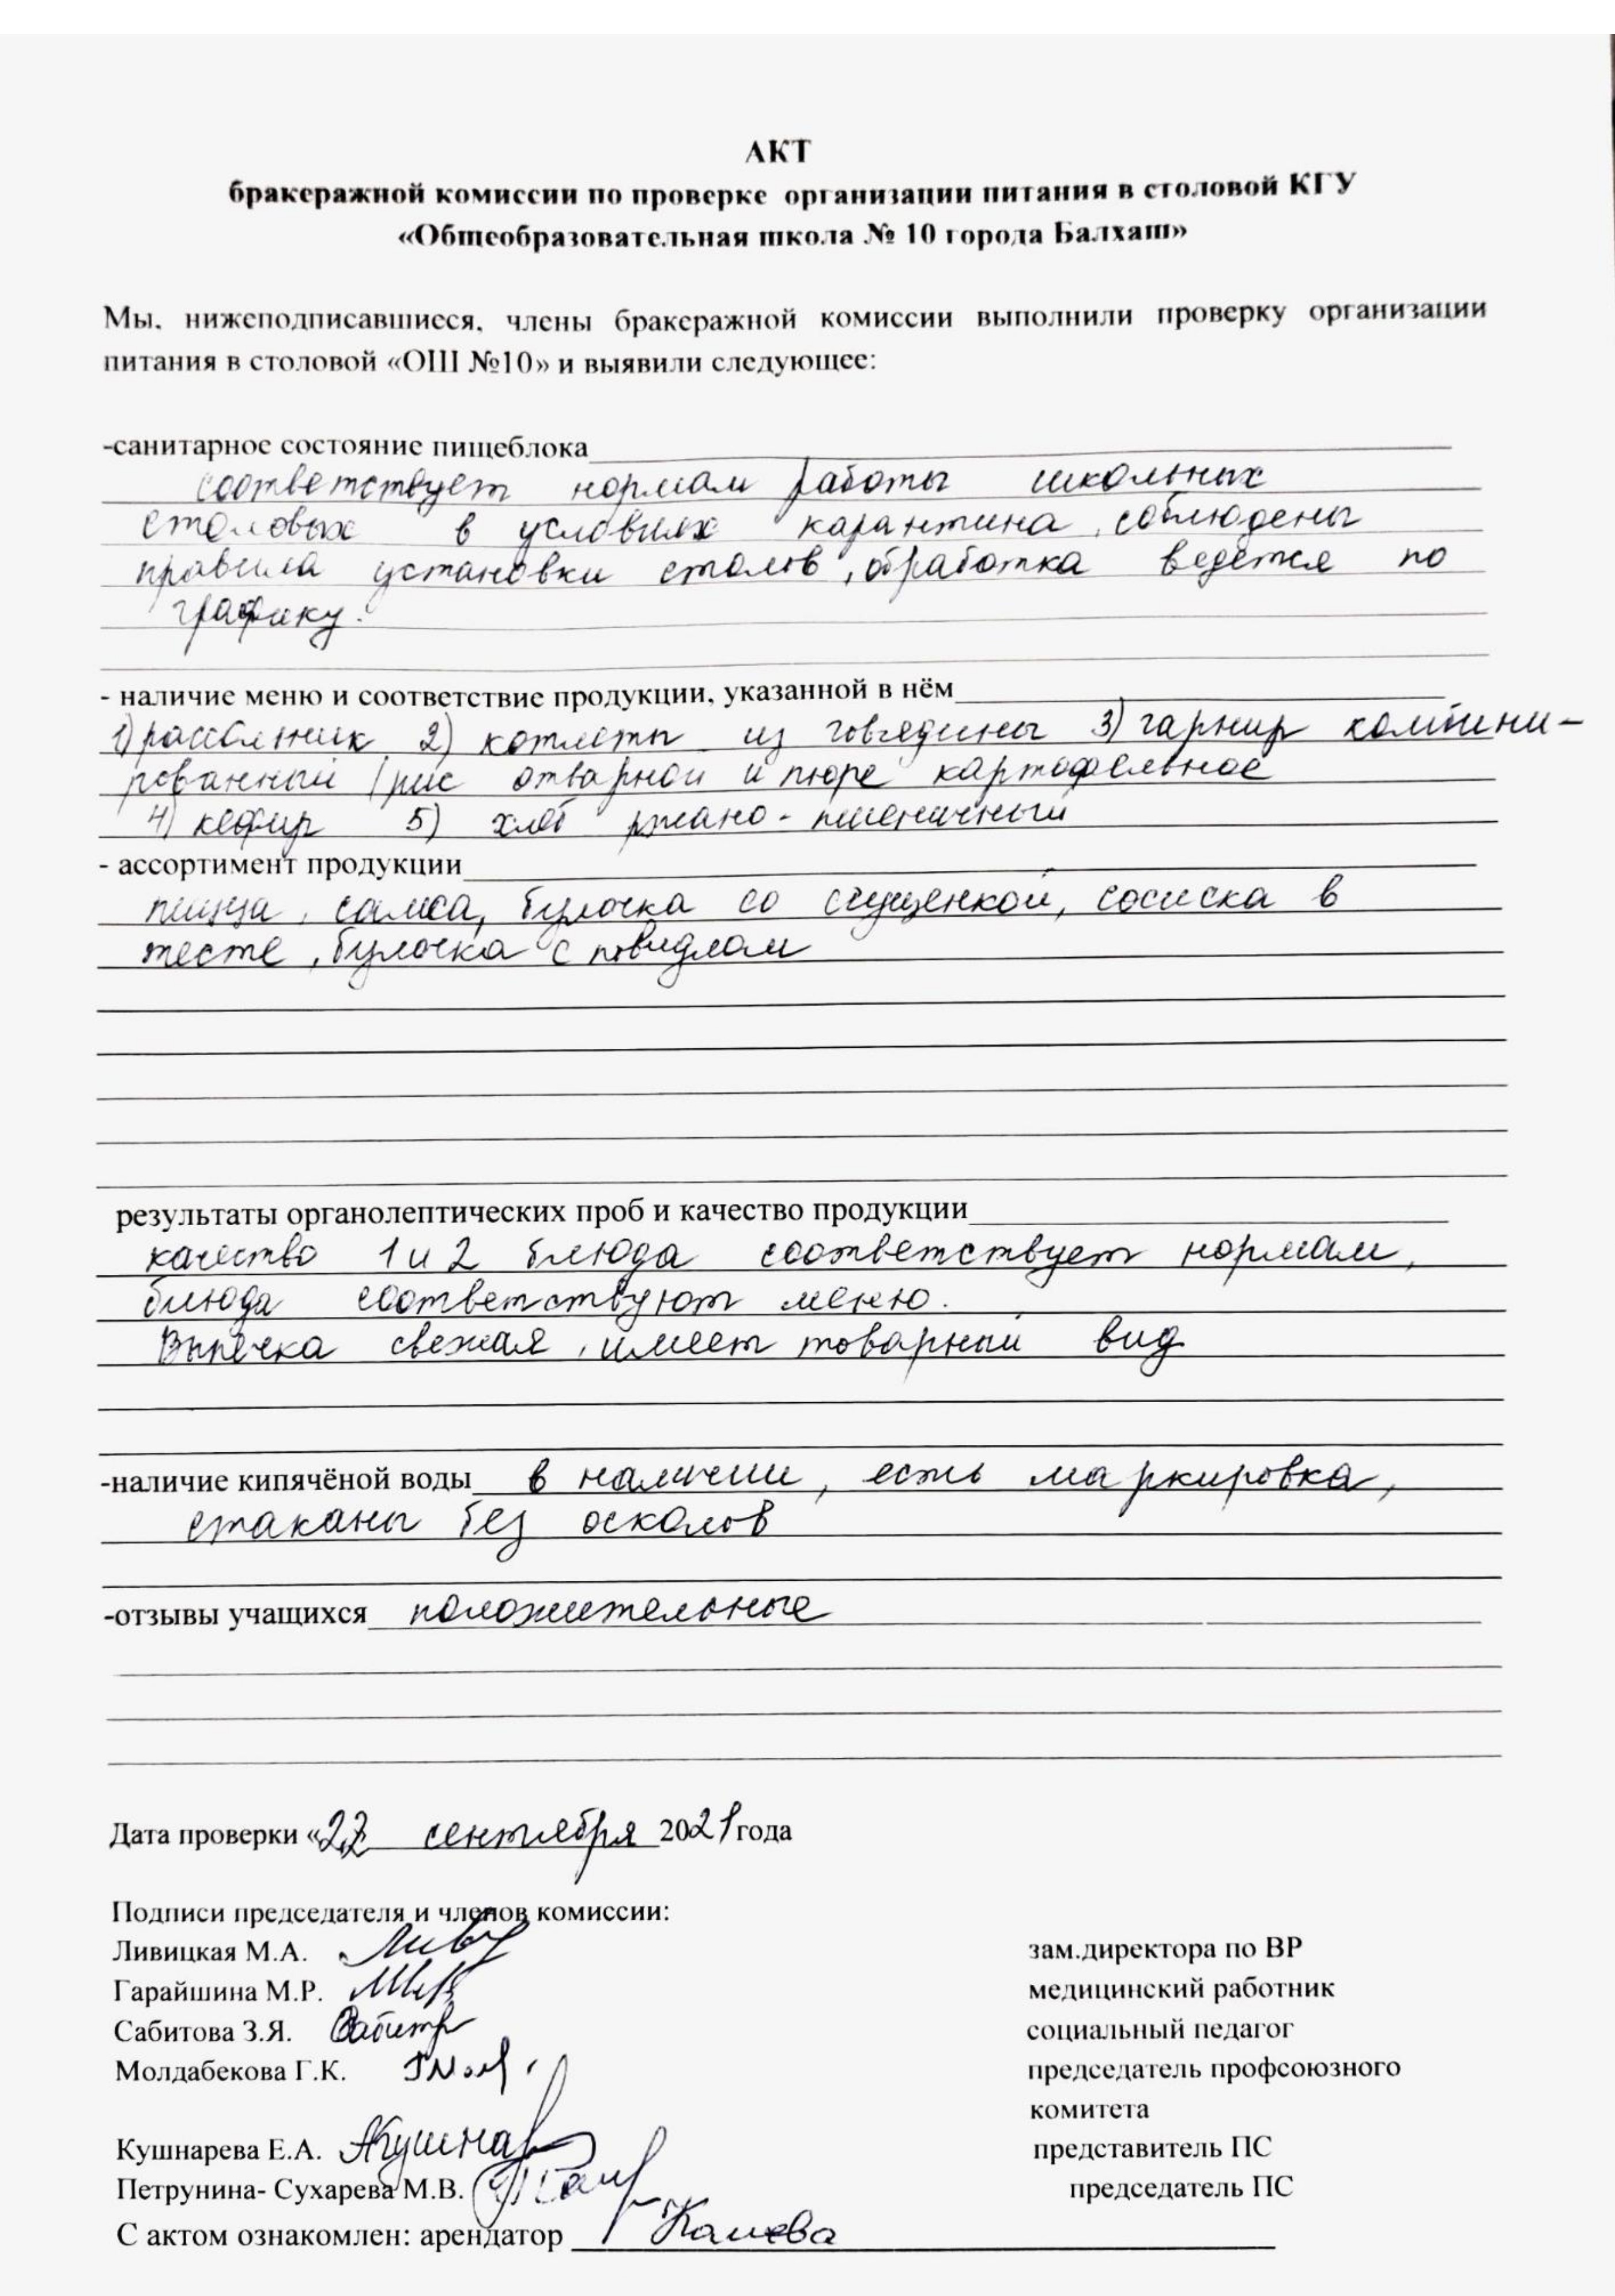 АКТ
бракеражной комиссии по проверке организации питания в столовой КГУ
«Общеобразовательная школа № 10 города Балхаш»
Мы, нижеподписавшиеся, члены бракеражной комиссии выполнили проверку организации
питания в столовой «ОШ №10» и выявили следующее:
-санитарное состояние пищеблока
соответствует нормам работы школьных
столовых в условиях карантина, соблюдены
правила установки столов, обработка ведётся по
графику.
- наличие меню и соответствие продукции, указанной в нём
1) рассольник 2) котлеты из говядины 3) гарнир комбини-
рованный (рис отварной и пюре картофельное
4) кефир 5) хлеб ржано-пшеничный
- ассортимент продукции
пицца, самса, булочка со сгущенкой, сосиска в
тесте, булочка с повидлом
результаты органолептических проб и качество продукции
качество 1 и 2 блюда соответствует нормам,
блюда соответствуют меню.
Выпечка свежая, имеет товарный вид
-наличие кипячёной воды в наличии, есть маркировка,
стаканы без осколов
-отзывы учащихся положительные
Дата проверки «22 сентября 2021 года
Подписи председателя и членов комиссии:
Ливицкая М.А. зам.директора по ВР
Гарайшина М.Р. медицинский работник
Сабитова З.Я. социальный педагог
Молдабекова Г.К. председатель профсоюзного
комитета
Кушнарева Е.А. представитель ПС
Петрунина- Сухарева М.В. председатель ПС
С актом ознакомлен: арендатор